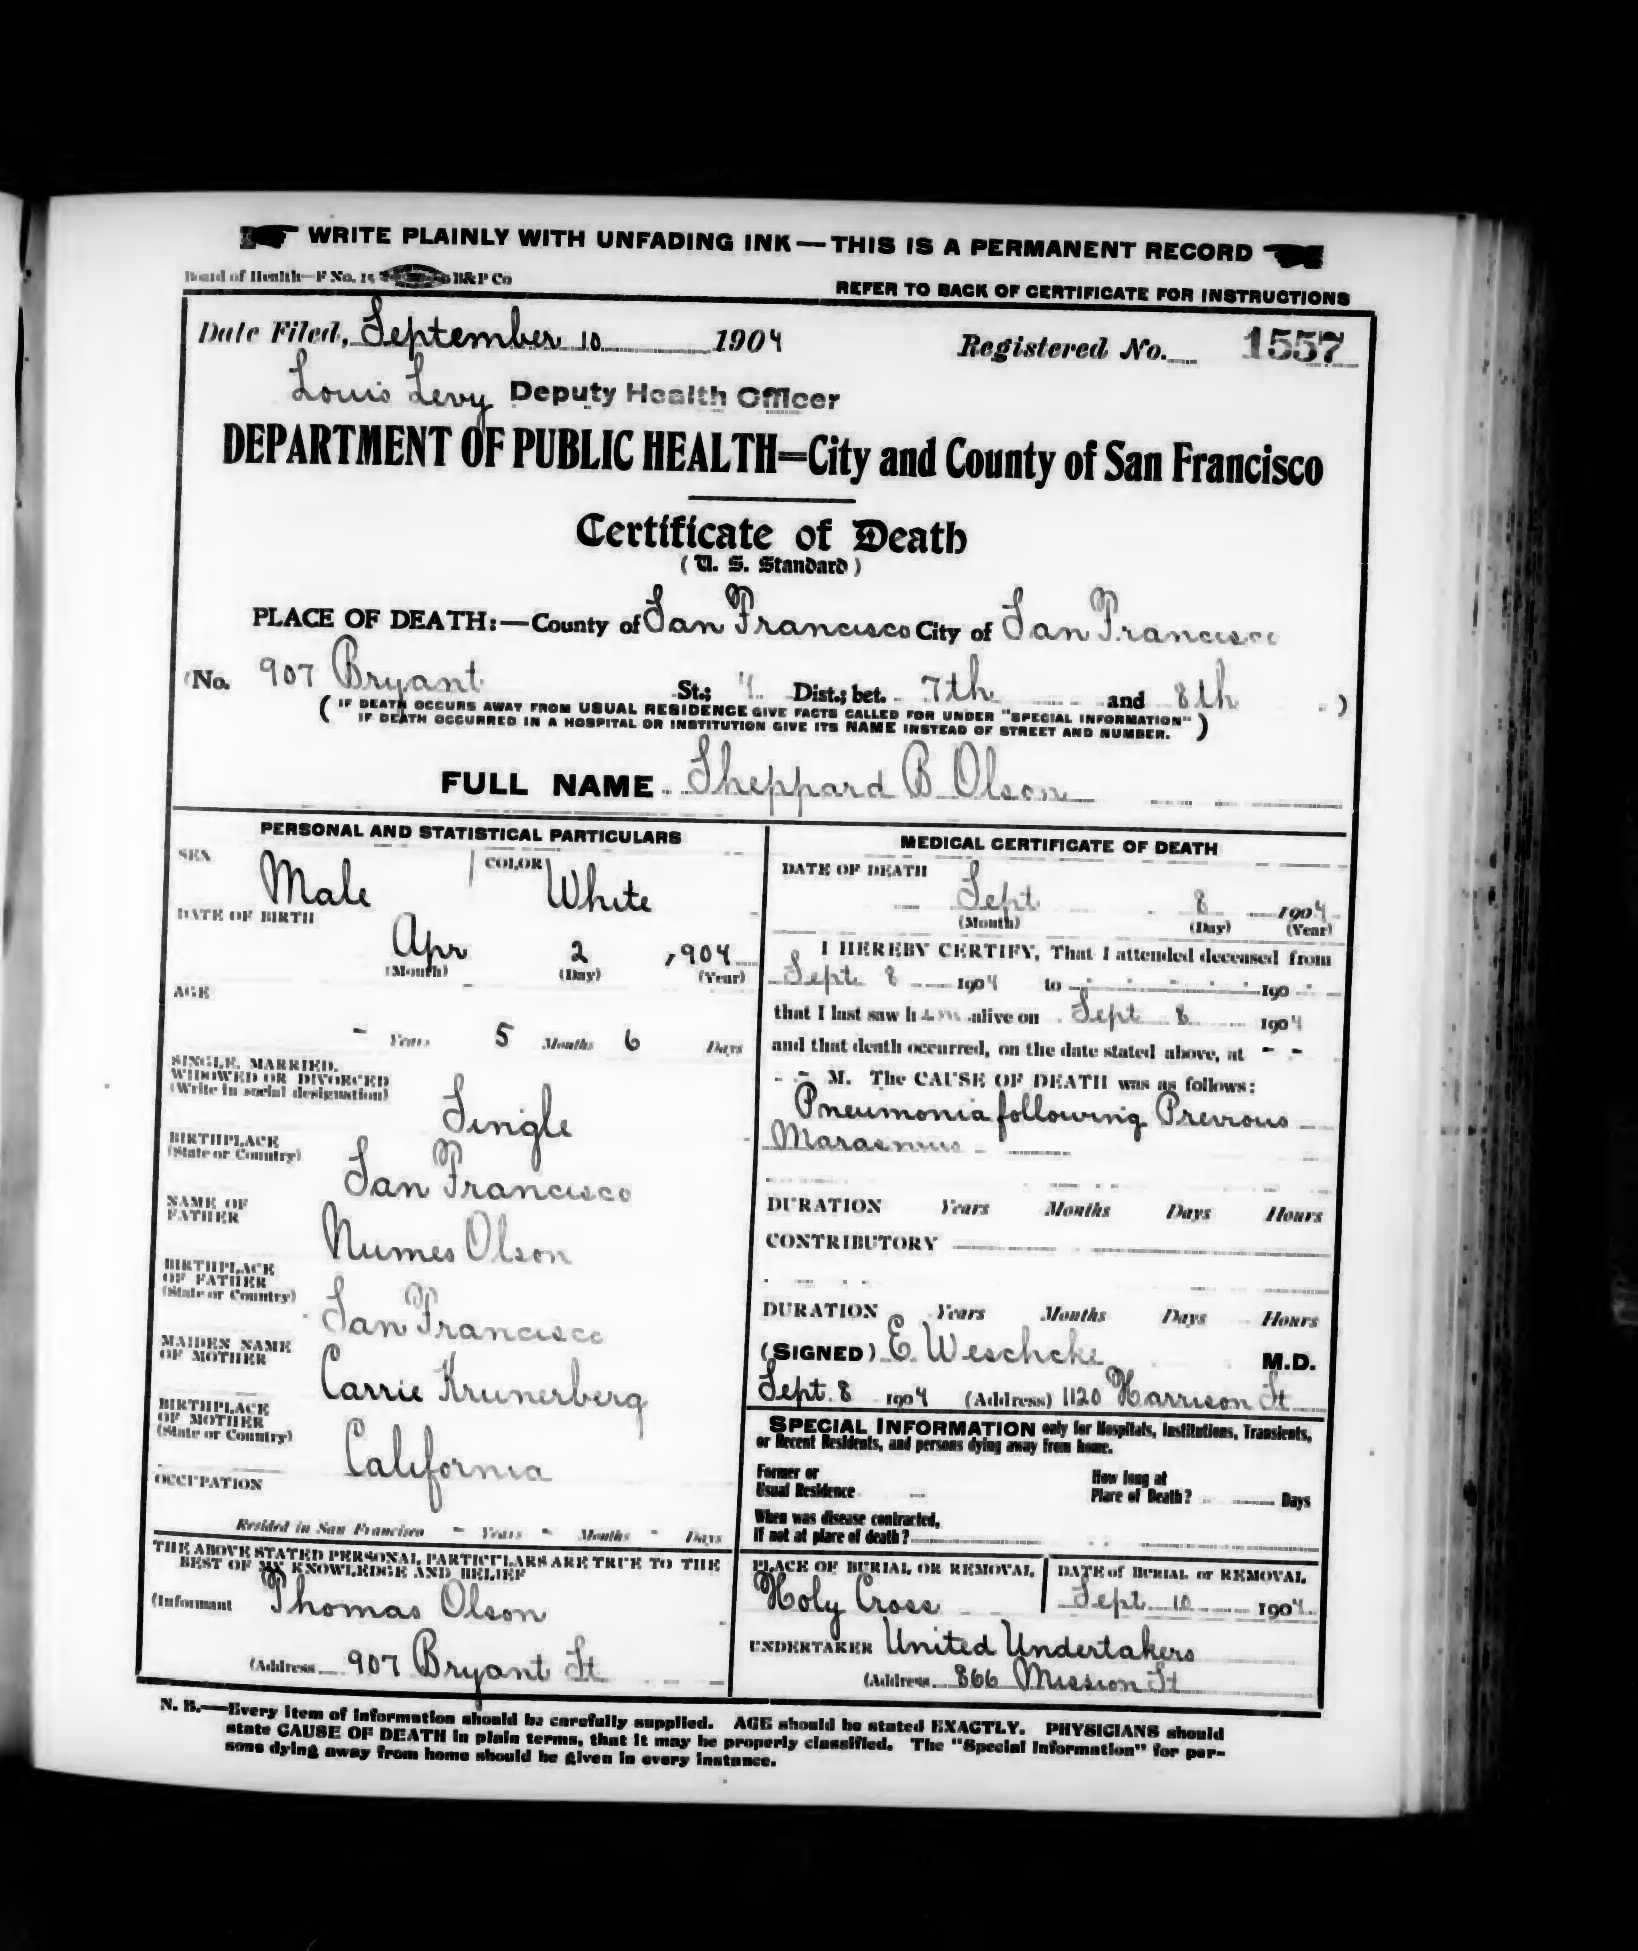 WRITE PLAINLY WITH UNFADING INK—THIS IS A PERMANENT RECORD
Board of Health—F No. 15 B&P Co
REFER TO BACK OF CERTIFICATE FOR INSTRUCTIONS
Date Filed, September 10 1904 Registered No. 1557
Louis Levy Deputy Health Officer
DEPARTMENT OF PUBLIC HEALTH=City and County of San Francisco
Certificate of Death
(U. S. Standard)
PLACE OF DEATH:—County of San Francisco City of San Francisco
(No. 907 Bryant St.; 4 Dist.; bet. 7th and 8th )
( IF DEATH OCCURS AWAY FROM USUAL RESIDENCE GIVE FACTS CALLED FOR UNDER "SPECIAL INFORMATION"
IF DEATH OCCURRED IN A HOSPITAL OR INSTITUTION GIVE ITS NAME INSTEAD OF STREET AND NUMBER. )
FULL NAME Sheppard B Olson
PERSONAL AND STATISTICAL PARTICULARS
SEX Male COLOR White
DATE OF BIRTH
Apr 2 , 904
(Month) (Day) (Year)
AGE
- Years 5 Months 6 Days
SINGLE, MARRIED,
WIDOWED OR DIVORCED
(Write in social designation)
Single
BIRTHPLACE
(State or Country)
San Francisco
NAME OF
FATHER
Numes Olson
BIRTHPLACE
OF FATHER
(State or Country)
San Francisco
MAIDEN NAME
OF MOTHER
Carrie Krunerberg
BIRTHPLACE
OF MOTHER
(State or Country)
California
OCCUPATION
Resided in San Francisco - Years - Months - Days
THE ABOVE STATED PERSONAL PARTICULARS ARE TRUE TO THE
BEST OF MY KNOWLEDGE AND BELIEF
(Informant Thomas Olson
(Address 907 Bryant St
MEDICAL CERTIFICATE OF DEATH
DATE OF DEATH
Sept 8 1904
(Month) (Day) (Year)
I HEREBY CERTIFY, That I attended deceased from
Sept 8 1904 to 190
that I last saw him alive on Sept 8 1904
and that death occurred, on the date stated above, at - -
- - M. The CAUSE OF DEATH was as follows:
Pneumonia following Previous
Marasmus
DURATION Years Months Days Hours
CONTRIBUTORY
DURATION Years Months Days Hours
(SIGNED) E Weschcke M.D.
Sept. 8 1904 (Address) 1120 Harrison St
SPECIAL INFORMATION only for Hospitals, Institutions, Transients,
or Recent Residents, and persons dying away from home.
Former or
Usual Residence
How long at
Place of Death? Days
When was disease contracted,
If not at place of death?
PLACE OF BURIAL OR REMOVAL
Holy Cross
DATE of BURIAL or REMOVAL
Sept 10 1904
UNDERTAKER United Undertakers
(Address 866 Mission St
N. B.—Every item of information should be carefully supplied. AGE should be stated EXACTLY. PHYSICIANS should
state CAUSE OF DEATH in plain terms, that it may be properly classified. The "Special Information" for per-
sons dying away from home should be given in every instance.